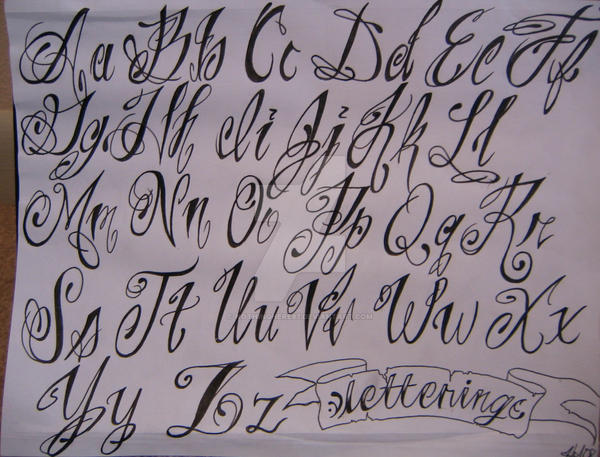 Aa Bb Cc Dd Ee Ff
Gg Hh Ii Jj Kk Ll
Mm Nn Oo Pp Qq Rr
Ss Tt Uu Vv Ww Xx
Yy Zz lettering